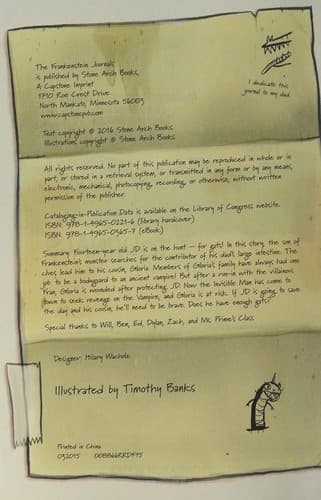 The Frankenstein Journals
is published by Stone Arch Books,
A Capstone Imprint
1710 Roe Crest Drive
North Mankato, Minnesota 56003
www.capstonepub.com
I dedicate this
journal to my dad.
Text copyright © 2016 Stone Arch Books
Illustrations copyright © Stone Arch Books
All rights reserved. No part of this publication may be reproduced in whole or in
part, or stored in a retrieval system, or transmitted in any form or by any means,
electronic, mechanical, photocopying, recording, or otherwise, without written
permission of the publisher.
Cataloging-in-Publication Data is available on the Library of Congress website.
ISBN: 978-1-4965-0221-6 (library hardcover)
ISBN: 978-1-4965-0365-7 (eBook)
Summary: Fourteen-year old JD is on the hunt -- for guts! In this story, the son of
Frankenstein's monster searches for the contributor of his dad's large intestine. The
clues lead him to his cousin, Gloria. Members of Gloria's family have always had one
job: to be a bodyguard to an ancient vampire! But after a run-in with the villainous
Fran, Gloria is wounded after protecting JD. Now the Invisible Man has come to
town to seek revenge on the Vampire, and Gloria is at risk. If JD is going to save
the day and his cousin, he'll need to be brave. Does he have enough guts?
Special thanks to Will, Ben, Ed, Dylan, Zach, and Ms. Prime's Class
Designer: Hilary Wacholz
Illustrated by Timothy Banks
Printed in China
032015